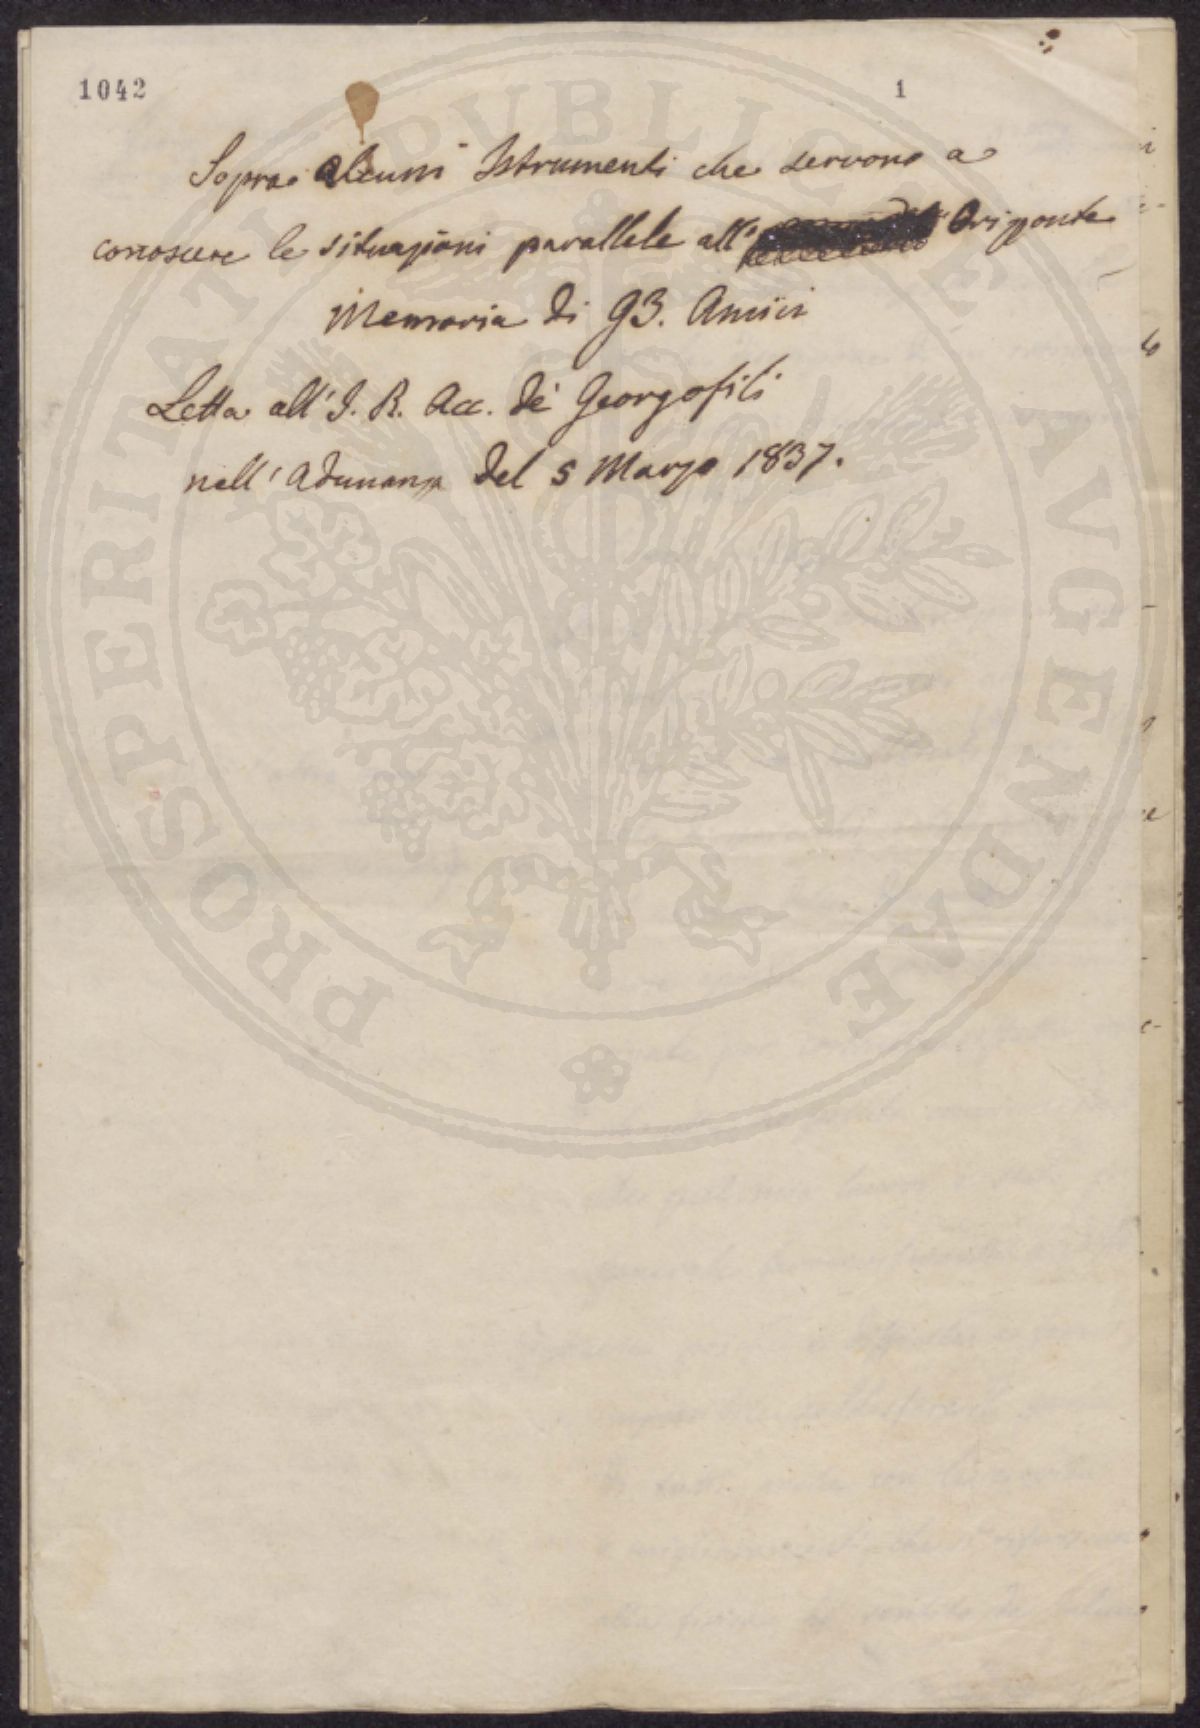 1042
1
Sopra alcuni Istrumenti che servono a
conoscere le situazioni parallele all' Orizzonte
Memoria di GB. Amici
Letta all' I. R. Acc. de' Georgofili
nell' Adunanza del 5 Marzo 1837.
PROSPERITATI PUBLICAE AVGENDAE